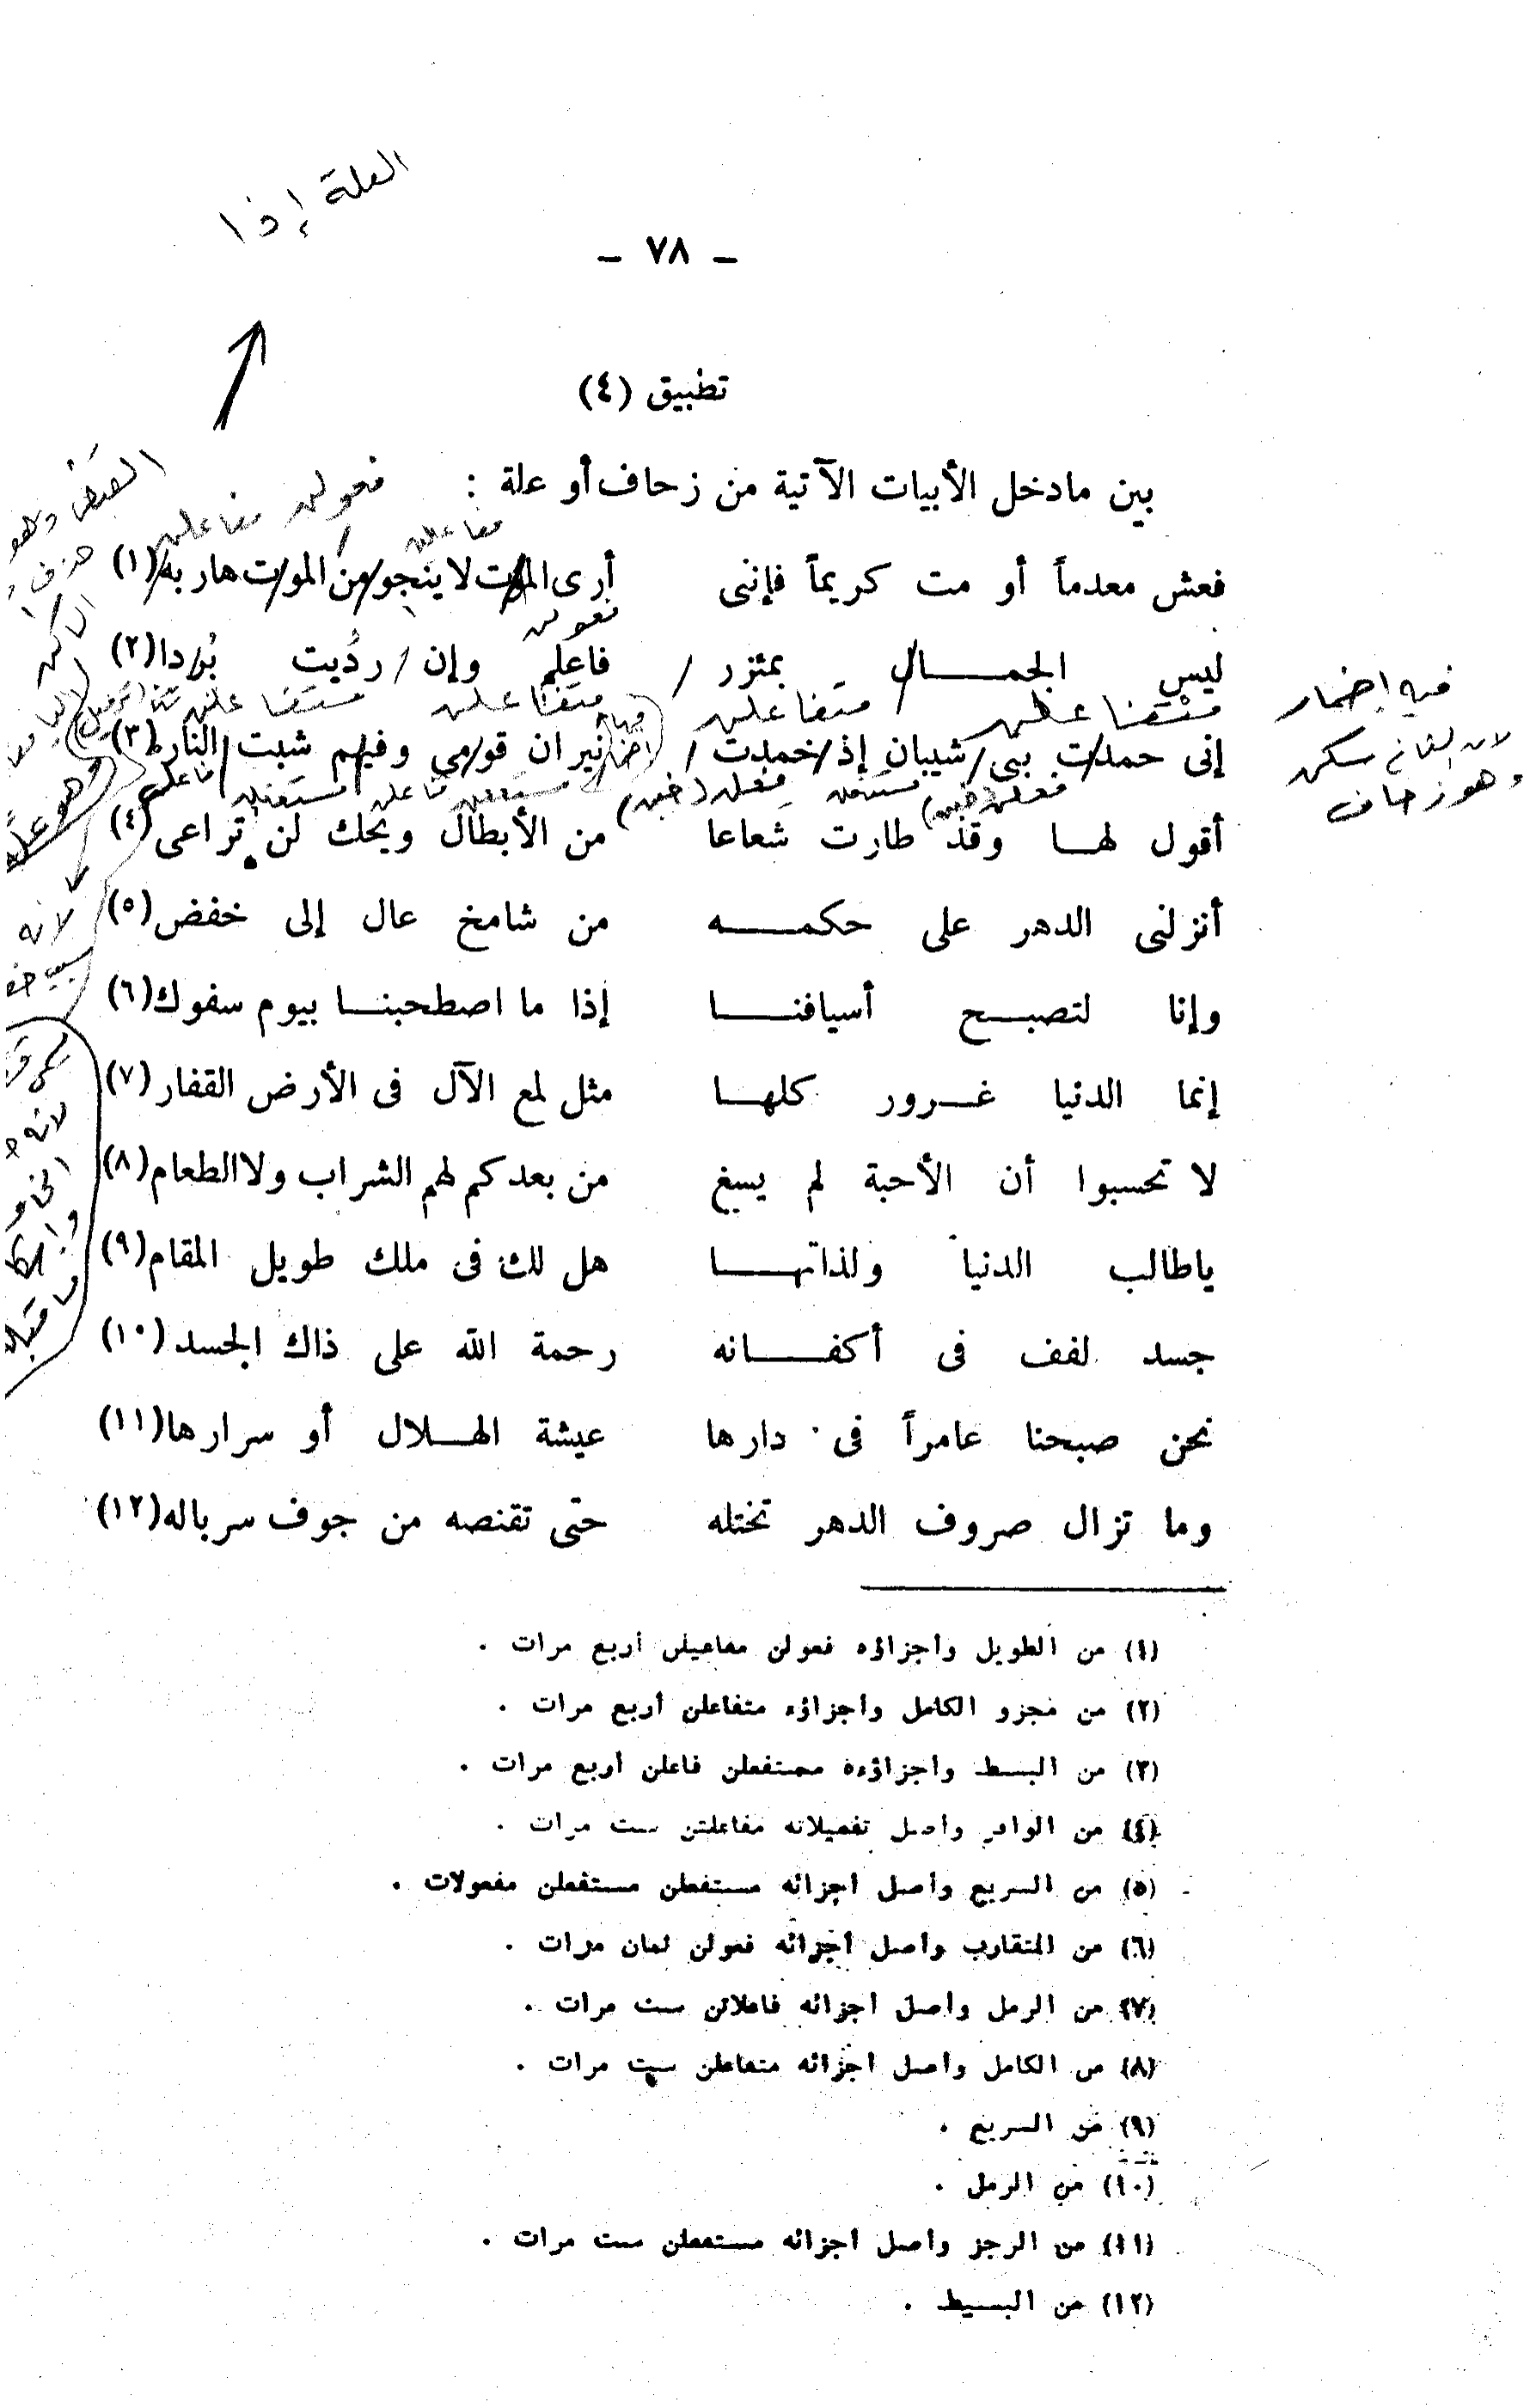 العلة إذا
- ٧٨ -
تطبيق (٤)
بين مادخل الأبيات الآتية من زحاف أو علة :
فعولن مفاعلن
مفاعلن
القبض وهو
حذف
فعش معدماً أو مت كريماً فإننى أرى الموت لا ينجو من الموت هاربه (١)
فعولن
ليس الجمـــال بمئزر فاعلم وإن رديت بُردا (٢)
متفاعلن متفاعلن متفاعلن متفاعلن
فيه إضمار
لان الثاني سكن
وهو زحاف
إنى حمدت بنى شيبان إذ خمدت نيران قومى وفيهم شبت النار (٣)
فعلن (خبن) مستفعلن فعلن (خبن) مستفعلن فاعلن مستفعلن فاعل
وهو علة
أقول لهــا وقد طارت شعاعا من الأبطال ويحك لن تراعى (٤)
لانه
أنزلنى الدهر على حكمـــه من شامخ عال إلى خفض (٥)
وإنا لتصبــح أسيافنــا إذا ما اصطحبنــا بيوم سفوك (٦)
إنما الدنيا غــرور كلهــا مثل لمع الآل فى الأرض القفار (٧)
لا تحسبوا أن الأحبة لم يسغ من بعدكم لهم الشراب ولا الطعام (٨)
ياطالب الدنيا ولذاتهــا هل لك فى ملك طويل المقام (٩)
جسد لفف فى أكفــانه رحمة الله على ذاك الجسد (١٠)
نحن صبحنا عامراً فى دارها عيشة الهــلال أو سرارها (١١)
وما تزال صروف الدهر تختله حتى تقنصه من جوف سرباله (١٢)
(١) من الطويل وأجزاؤه فعولن مفاعيلن أربع مرات .
(٢) من مجزو الكامل وأجزاؤه متفاعلن أربع مرات .
(٣) من البسط وأجزاؤءه مستفعلن فاعلن أربع مرات .
(٤) من الوافر وأصل تفعيلاته مفاعلتن ست مرات .
(٥) من السريع وأصل أجزائه مستفعلن مستفعلن مفعولات .
(٦) من المتقارب وأصل أجزائه فعولن ثمان مرات .
(٧) من الرمل وأصل أجزائه فاعلاتن ست مرات .
(٨) من الكامل وأصل أجزائه متفاعلن ست مرات .
(٩) من السريع .
(١٠) من الرمل .
(١١) من الرجز وأصل أجزائه مستفعلن ست مرات .
(١٢) من البسيط .